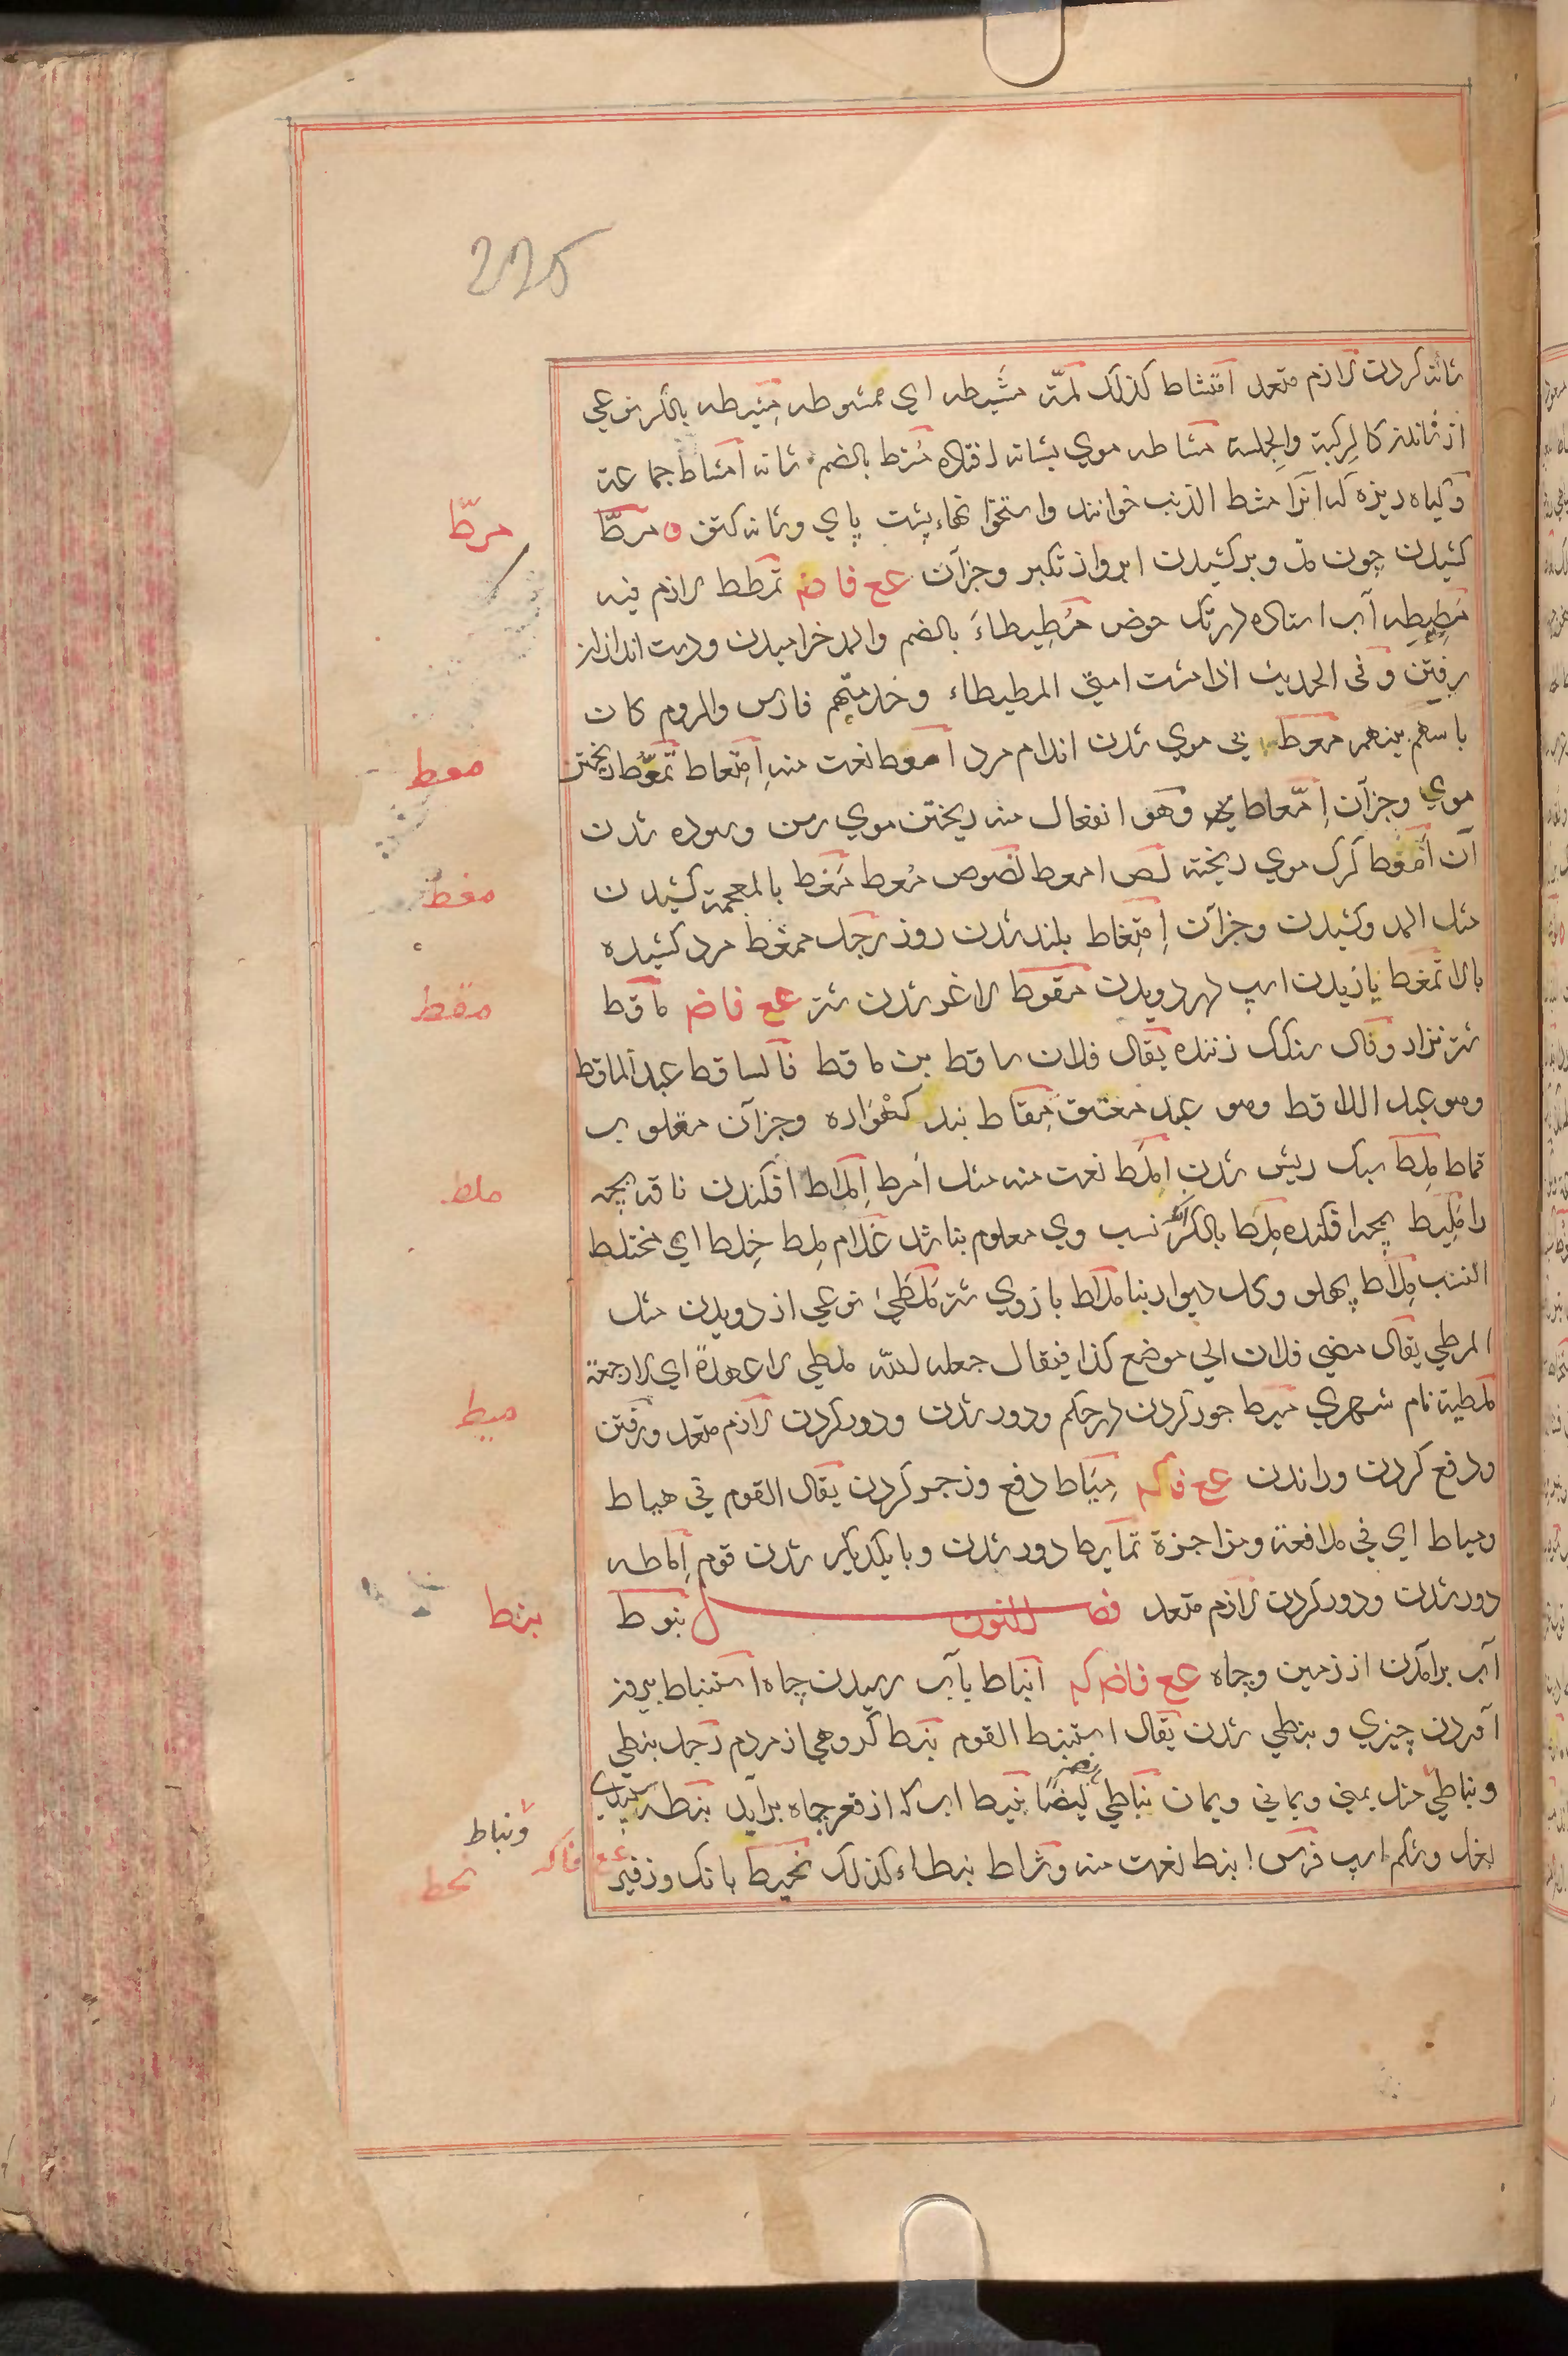 225
شانه کردن لازم متعد امتشاط کذلک لمّة مشیطه ای ممشوطه مِشیطه بالکسر نوعی
از شانلن کالرکبة والجلسة مشاطه موی بشانه افتاده مُشط بالضم شانه امشاط جماعة
و کیاه ریزه که انرا مشط الذئب خوانند واستخوانهاء پشت پای وشانه کتف مطّ
مطّ
کشیدن چون مد وبرکشیدن ابرو از تکبر وجزآن عع فاضم تمطط لازم فیه
مَطِیطِه آب استاده در تک حوض مُطِیطاءَ بالضم والمد خرامیدن ودست اندازان
برفتن وفی الحدیث اذا مشت امتی المطیطاء وخدمتهم فارس والروم کان
باسهم بینهم معط بی موی شدن اندام مرد امعط نعت منه اِمتِعاط تمعّط ریختن
معط
موی وجزآن اِمّعاط وهو انفعال منه ریختن موی رسن وسوده شدن
آن اَمعط کرک موی ریخته لص امعط لصوص مُعط مَغط بالمعجمة کشیدن
مغط
مثل المد وکشیدن وجزآن اِمتِغاط بلند شدن روز رجل ممغط مرد کشیده
بالا تمغط یازیدن اسپ در دویدن مقوط لاغر شدن شتر عع فاضم ماقط
مقط
شتر نزار وفال سنکک زننده یقال فلان ساقط بن ماقط فالساقط عبد الماقط
وهو عبد اللاقط وهو عبد معتق مِقاط بند کهواره وجزآن مقلوب
قماط مِلط سبک ریش شدن اِملَط نعت منه مثل اَمرط اِملاط افکندن ناقه بچه
ملط
را مَلِیط بچه افکنده مِلط بالکسر آنکه نسب وی معلوم نباشد غلام مِلط خِلط ای مختلط
النسب مِلاط پهلو وکل دیوار بنا ملاط بازوی شتر مَلَطَی نوعی از دویدن مثل
المرطی یقال مضی فلان الی موضع کذا فیقال جعله لله ملطی لا عهدة ای لا رجعة
ملطیة نام شهری میط جور کردن در حکم ودور شدن ودور کردن لازم متعد ورفتن
میط
ودفع کردن وراندن عع فاکم مِیَاط دفع وزجر کردن یقال القوم فی هیاط
ومیاط ای فی مدافعة ومزاجرة تمایط دور شدن وبا یکدیکر شدن قوم اِماطه
دور شدن ودور کردن لازم متعد فصل النون نبوط
نبط
آب برآمدن از زمین وچاه عع فاضم کم انباط بآب رسیدن چاه استنباط بیرون
آوردن چیزی ونبطی شدن یقال استنبط القوم نبط کروهی از مردم رجل نبطی
ونباطی مثل یمنی ویمانی ویمان نباطی ایضا نبیط آب که از قعر چاه برآید نبطه سپیدی
ونباط
بغل وشکم اسپ فرس انبط نعت منه وشاط نبطاء کذلک نحیط بانک وزفیر
عع فاکم
نحط